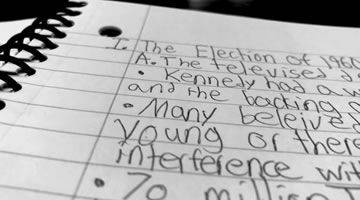 I. The Election of 1960
A. The televised
• Kennedy had a
and the backing
• Many beleived
young or there
interference with
• 70 million